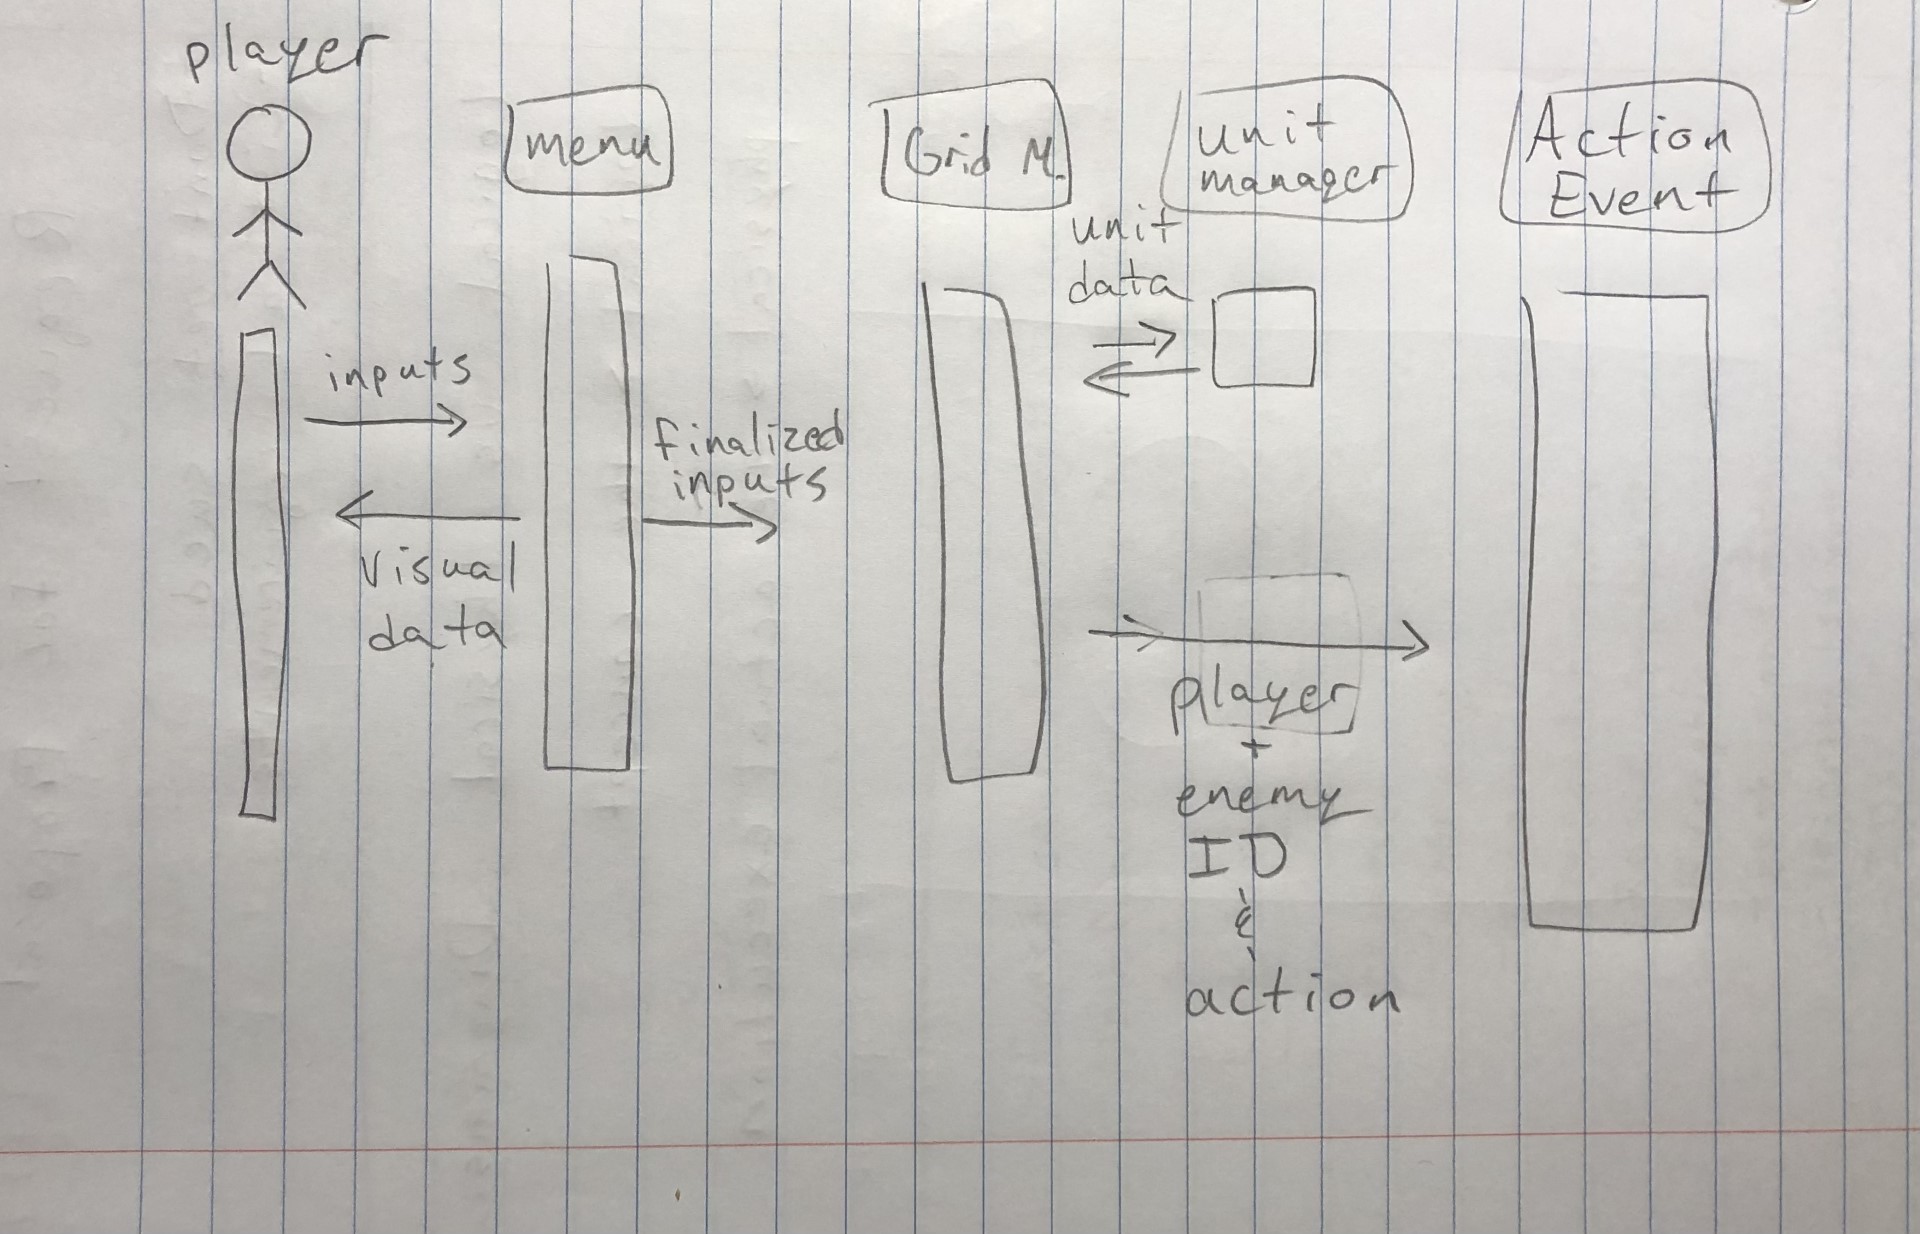 player
menu
Grid M.
unit
manager
Action
Event
unit
data
inputs
finalized
inputs
visual
data
player
+
enemy
ID
&
action